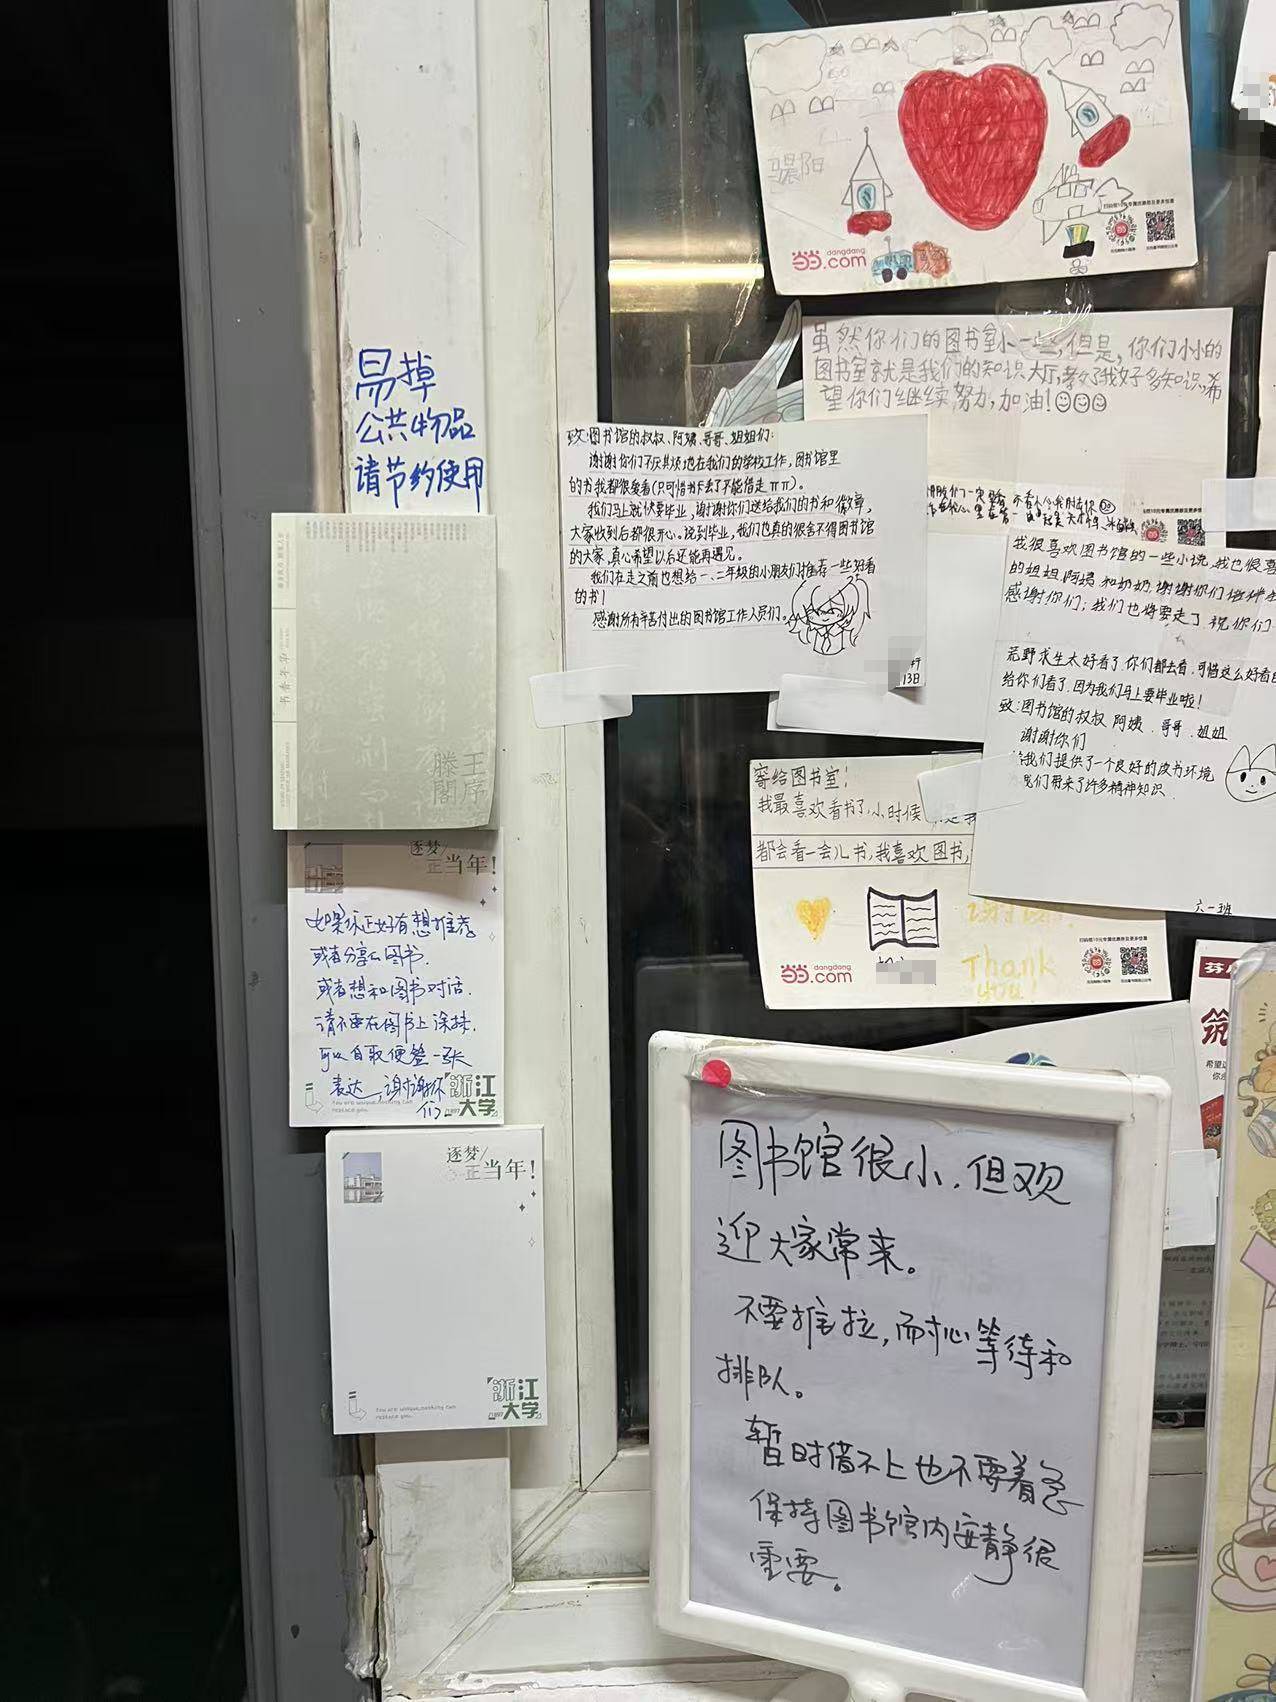 易掉
公共物品
请节约使用
书香年华
滕王
閣序
逐梦/
正当年!
如果你正好有想推荐
或者分享的图书.
或者想和图书对话.
请不要在图书上涂抹.
可以自取便签一张
表达,谢谢你
们
You are unique,nothing can
replace you.
浙江
大学
1897
逐梦/
正当年!
You are unique,nothing can
replace you.
1897
浙江
大学
晨阳
扫码领10元专属优惠券及更多惊喜
当当
dangdang
.com
虽然你们的图书室小一些,但是,你们小小的
图书室就是我们的知识大厅,教了我好多知识,希
望你们继续努力,加油!
致:图书馆的叔叔、阿姨、哥哥、姐姐们:
谢谢你们不厌其烦地在我们的学校工作,图书馆里
的书我都很爱看(只可惜书卡丢了不能借走 π π)。
我们马上就快要毕业,谢谢你们送给我们的书和徽章,
大家收到后都很开心。说到毕业,我们也真的很舍不得图书馆
的大家,真心希望以后还能再遇见。
我们在走之前也想给一、二年级的小朋友们推荐一些好看
的书!
感谢所有辛苦付出的图书馆工作人员们。
13日
我很喜欢图书馆的一些小说,我也很喜
的姐姐,阿姨和奶奶,谢谢你们
感谢你们;我们也将要走了,祝你们
荒野求生太好看了,你们都去看,可惜这么好看
给你们看了,因为我们马上要毕业啦!
致:图书馆的叔叔 阿姨、哥哥、姐姐
谢谢你们
给我们提供了一个良好的读书环境
我们带来了许多精神知识
六一班
寄给图书室!
我最喜欢看书了,小时候
都会看一会儿书,我喜欢图书,
Thank
you!
扫码领10元专属优惠券及更多惊喜
当当
dangdang
.com
筑
希望
图书馆很小,但欢
迎大家常来。
不要推拉,耐心等待和
排队。
暂时借不上也不要着急
保持图书馆内安静很
重要。